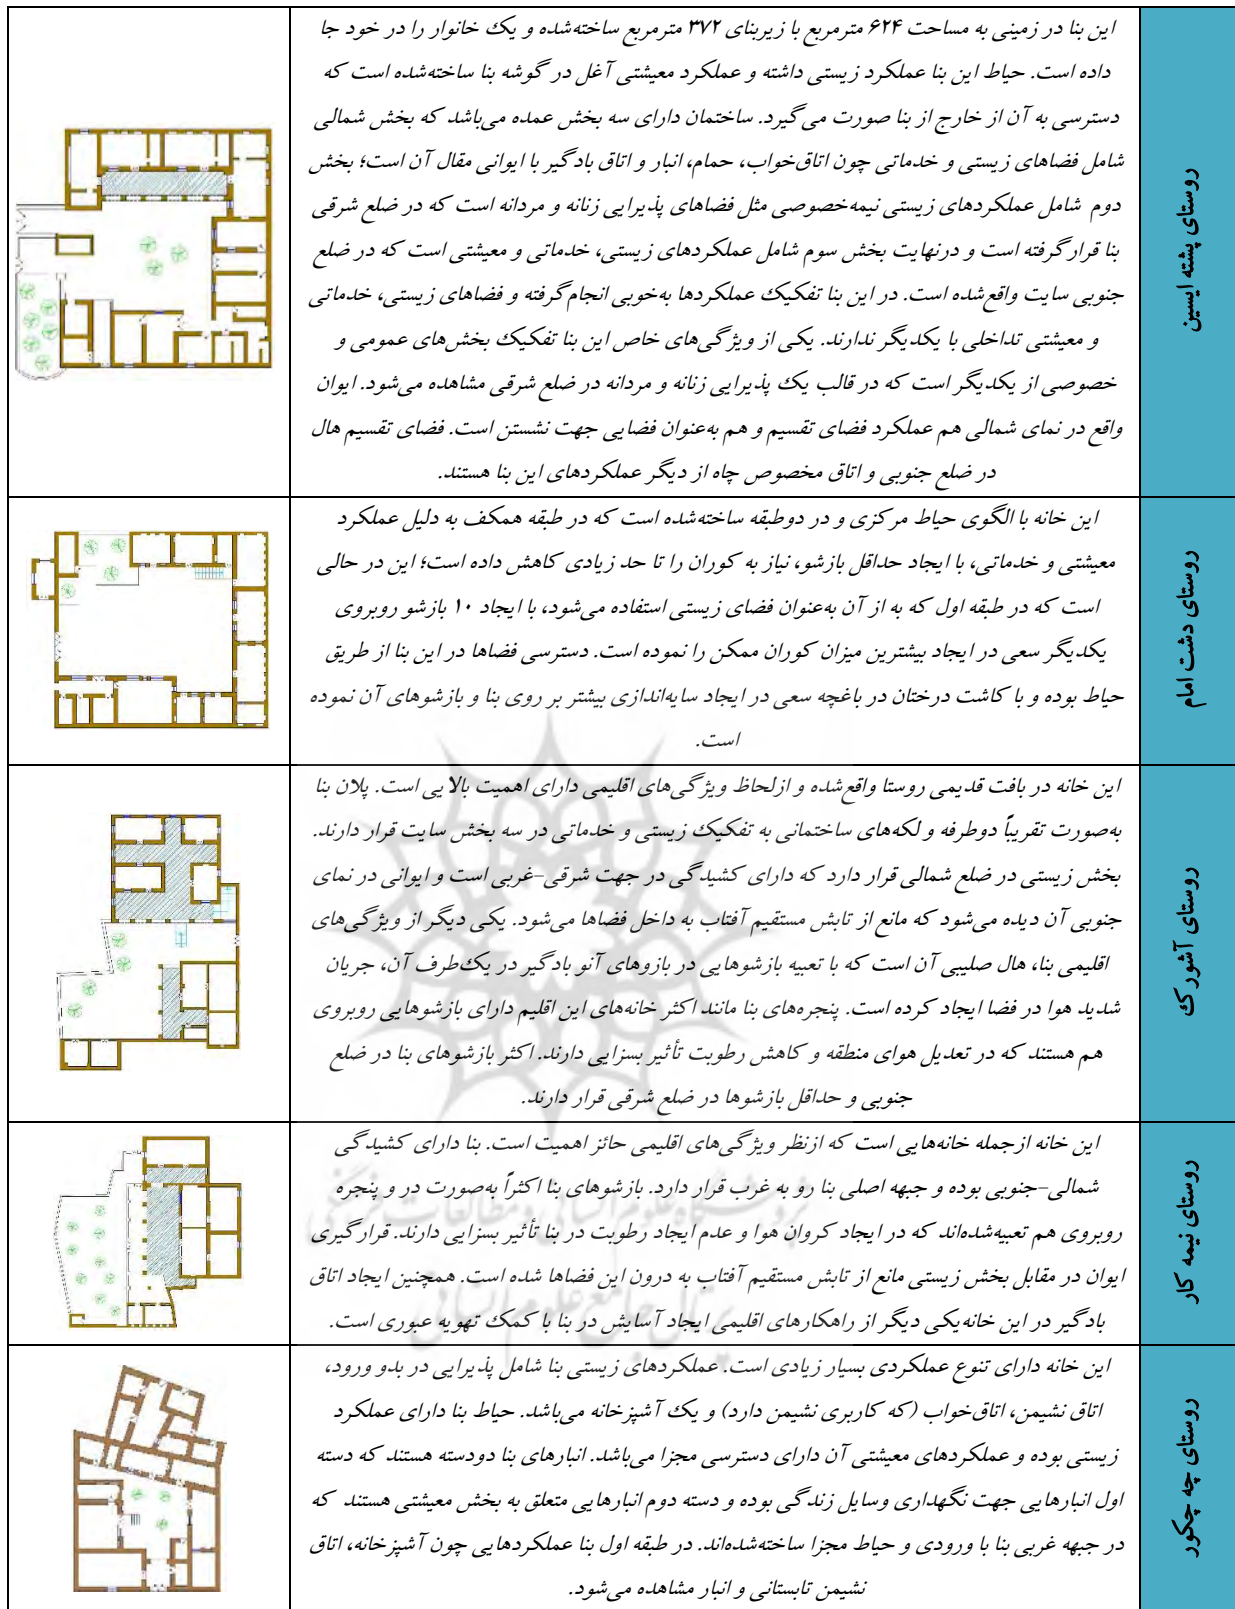 روستای پشته ایسین
این بنا در زمینی به مساحت ۶۲۴ مترمربع با زیربنای ۳۷۲ مترمربع ساخته‌شده و یک خانوار را در خود جا
داده است. حیاط این بنا عملکرد زیستی داشته و عملکرد معیشتی آغل در گوشه بنا ساخته‌شده است که
دسترسی به آن از خارج از بنا صورت می‌گیرد. ساختمان دارای سه بخش عمده می‌باشد که بخش شمالی
شامل فضاهای زیستی و خدماتی چون اتاق‌خواب، حمام، انبار و اتاق بادگیر با ایوانی مقال آن است؛ بخش
دوم شامل عملکردهای زیستی نیمه‌خصوصی مثل فضاهای پذیرایی زنانه و مردانه است که در ضلع شرقی
بنا قرارگرفته است و درنهایت بخش سوم شامل عملکردهای زیستی، خدماتی و معیشتی است که در ضلع
جنوبی سایت واقع‌شده است. در این بنا تفکیک عملکردها به‌خوبی انجام‌گرفته و فضاهای زیستی، خدماتی
و معیشتی تداخلی با یکدیگر ندارند. یکی از ویژگی‌های خاص این بنا تفکیک بخش‌های عمومی و
خصوصی از یکدیگر است که در قالب یک پذیرایی زنانه و مردانه در ضلع شرقی مشاهده می‌شود. ایوان
واقع در نمای شمالی هم عملکرد فضای تقسیم و هم به‌عنوان فضایی جهت نشستن است. فضای تقسیم هال
در ضلع جنوبی و اتاق مخصوص چاه از دیگر عملکردهای این بنا هستند.
روستای دشت امام
این خانه با الگوی حیاط مرکزی و در دوطبقه ساخته‌شده است که در طبقه همکف به دلیل عملکرد
معیشتی و خدماتی، با ایجاد حداقل بازشو، نیاز به کوران را تا حد زیادی کاهش داده است؛ این در حالی
است که در طبقه اول که به از آن به‌عنوان فضای زیستی استفاده می‌شود، با ایجاد ۱۰ بازشو روبروی
یکدیگر سعی در ایجاد بیشترین میزان کوران ممکن را نموده است. دسترسی فضاها در این بنا از طریق
حیاط بوده و با کاشت درختان در باغچه سعی در ایجاد سایه‌اندازی بیشتر بر روی بنا و بازشوهای آن نموده
است.
روستای آشورک
این خانه در بافت قدیمی روستا واقع‌شده و ازلحاظ ویژگی‌های اقلیمی دارای اهمیت بالایی است. پلان بنا
به‌صورت تقریباً دوطرفه و لکه‌های ساختمانی به تفکیک زیستی و خدماتی در سه بخش سایت قرار دارند.
بخش زیستی در ضلع شمالی قرار دارد که دارای کشیدگی در جهت شرقی-غربی است و ایوانی در نمای
جنوبی آن دیده می‌شود که مانع از تابش مستقیم آفتاب به داخل فضاها می‌شود. یکی دیگر از ویژگی‌های
اقلیمی بنا، هال صلیبی آن است که با تعبیه بازشوهایی در بازوهای آنو بادگیر در یک‌طرف آن، جریان
شدید هوا در فضا ایجاد کرده است. پنجره‌های بنا مانند اکثر خانه‌های این اقلیم دارای بازشوهایی روبروی
هم هستند که در تعدیل هوای منطقه و کاهش رطوبت تأثیر بسزایی دارند. اکثر بازشوهای بنا در ضلع
جنوبی و حداقل بازشوها در ضلع شرقی قرار دارند.
روستای نیمه کار
این خانه ازجمله خانه‌هایی است که ازنظر ویژگی‌های اقلیمی حائز اهمیت است. بنا دارای کشیدگی
شمالی-جنوبی بوده و جبهه اصلی بنا رو به غرب قرار دارد. بازشوهای بنا اکثراً به‌صورت در و پنجره
روبروی هم تعبیه‌شده‌اند که در ایجاد کروان هوا و عدم ایجاد رطوبت در بنا تأثیر بسزایی دارند. قرارگیری
ایوان در مقابل بخش زیستی مانع از تابش مستقیم آفتاب به درون این فضاها شده است. همچنین ایجاد اتاق
بادگیر در این خانه یکی دیگر از راهکارهای اقلیمی ایجاد آسایش در بنا با کمک تهویه عبوری است.
روستای چه چکور
این خانه دارای تنوع عملکردی بسیار زیادی است. عملکردهای زیستی بنا شامل پذیرایی در بدو ورود،
اتاق نشیمن، اتاق‌خواب (که کاربری نشیمن دارد) و یک آشپزخانه می‌باشد. حیاط بنا دارای عملکرد
زیستی بوده و عملکردهای معیشتی آن دارای دسترسی مجزا می‌باشد. انبارهای بنا دودسته هستند که دسته
اول انبارهایی جهت نگهداری وسایل زندگی بوده و دسته دوم انبارهایی متعلق به بخش معیشتی هستند که
در جبهه غربی بنا با ورودی و حیاط مجزا ساخته‌شده‌اند. در طبقه اول بنا عملکردهایی چون آشپزخانه، اتاق
نشیمن تابستانی و انبار مشاهده می‌شود.
پژوهشگاه علوم انسانی و مطالعات فرهنگی
پرتال جامع علوم انسانی